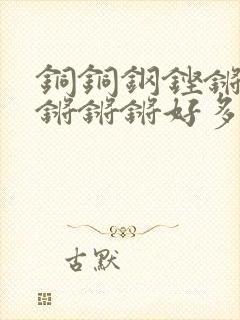 銅銅鋼鏗鏘
鏘鏘鏘好多
古默